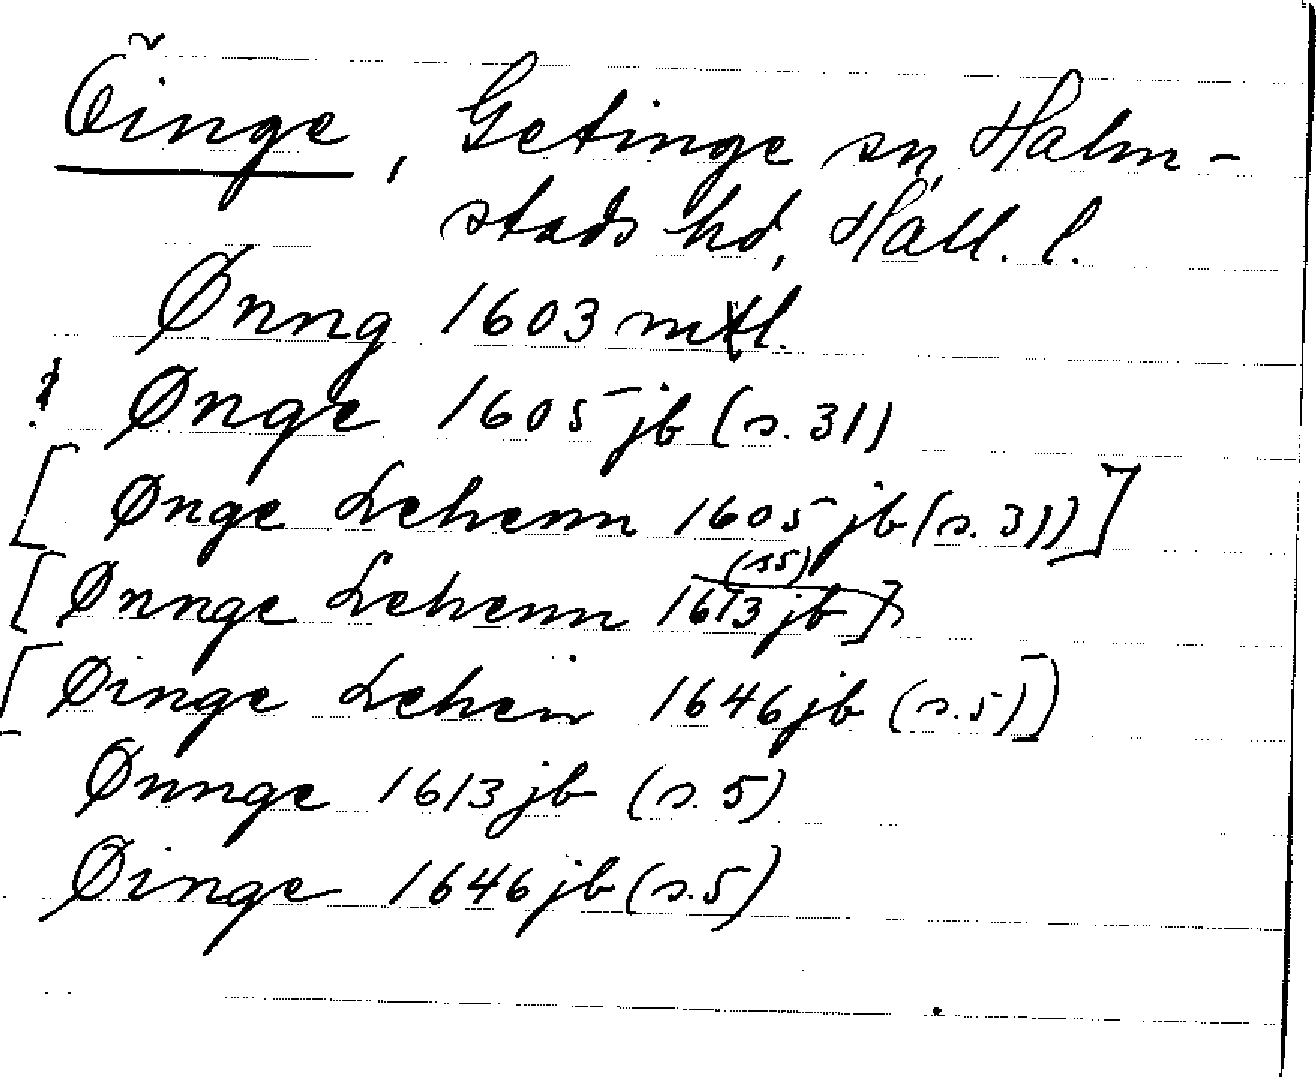 Öinge, Getinge sn, Halm-
stads hd, Hall. l.
Ønng 1603 mtl.
! Ønge 1605 jb (s. 31)
[Ønge Lehenn 1605 jb (s. 31)]
[Ønnge Lehenn 1613 jb (s5)]
[Øinge Lehen 1646 jb (s.5)]
Ønnge 1613 jb (s. 5)
Øinge 1646 jb (s.5)